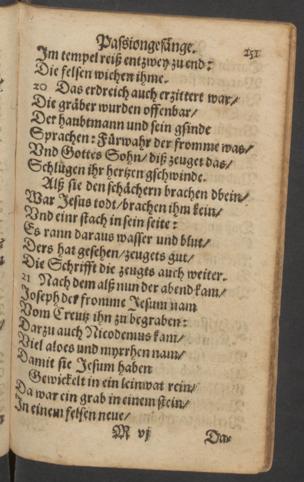 Passiongesänge. 251
Im tempel reiß entzwey zu end:
Die felsen wichen ihme.
20 Das erdreich auch erzittert war/
Die gräber wurden offenbar/
Der haubtmann und sein gsinde
Sprachen: Fürwahr der fromme was/
Vnd Gottes Sohn/ diß zeuget das/
Schlugen ihr hertzen gschwinde.
Alß sie den schächern brachen dbein/
War Jesus todt/ brachen ihm kein/
Vnd einr stach in sein seite:
Es rann daraus wasser und blut/
Ders hat gesehen/ zeugets gut/
Die Schrifft die zeugts auch weiter.
21 Nach dem alß nun der abend kam/
Joseph der fromme Jesum nam
Vom Creutz ihn zu begraben:
Darzu auch Nicodemus kam/
Viel aloes und myrrhen nam/
Damit sie Jesum haben
Gewickelt in ein leinwat rein/
Da war ein grab in einem stein/
In einem felsen neue/
M vj Da-